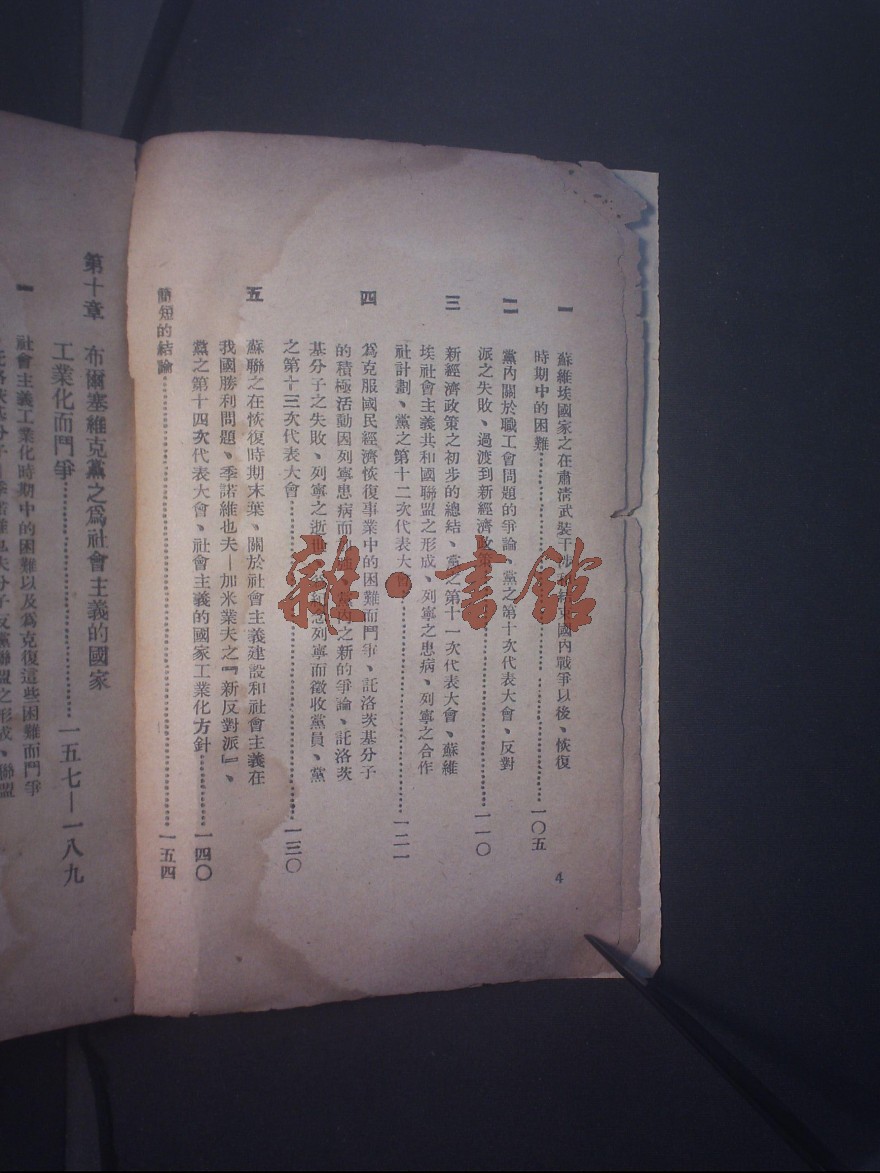 一 蘇維埃國家之在肅清武裝干涉和結束國內戰爭以後、恢復
時期中的困難 一〇五
二 黨內關於職工會問題的爭論、黨之第十次代表大會、反對
派之失敗、過渡到新經濟政策 一一〇
三 新經濟政策之初步的總結、黨之第十一次代表大會、蘇維
埃社會主義共和國聯盟之形成、列寧之患病、列寧之合作
社計劃、黨之第十二次代表大會 一二一
四 爲克服國民經濟恢復事業中的困難而鬥爭、託洛茨基分子
的積極活動因列寧患病而加強、黨內之新的爭論、託洛茨
基分子之失敗、列寧之逝世、爲紀念列寧而徵收黨員、黨
之第十三次代表大會 一三〇
五 蘇聯之在恢復時期末葉、關於社會主義建設和社會主義在
我國勝利問題、季諾維也夫—加米業夫之『新反對派』、
黨之第十四次代表大會、社會主義的國家工業化方針 一四〇
簡短的結論 一五四
4
第十章 布爾塞維克黨之爲社會主義的國家
工業化而鬥爭 一五七—一八九
一 社會主義工業化時期中的困難以及爲克復這些困難而鬥爭
託洛茨基分子—季諾維也夫分子反黨聯盟之形成、聯盟
雜·書館